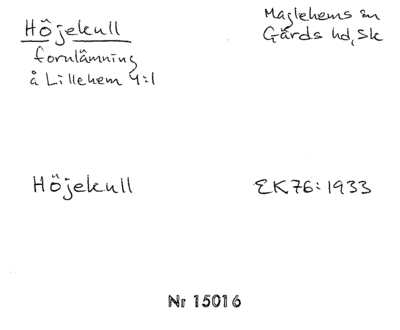 Höjekull
fornlämning
å Lillehem 4:1
Maglehems sn
Gärds hd, Sk
Höjekull
EK76:1933
Nr 15016